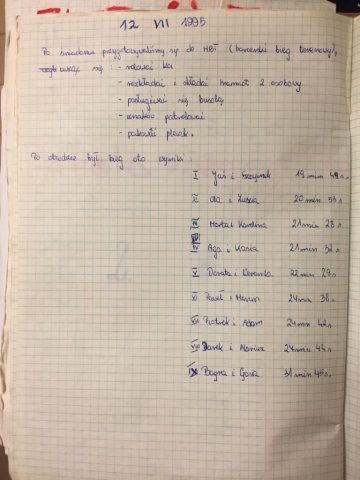 12 VII 1995
Po śniadaniu przygotowywaliśmy się do HBT (harcerski bieg terenowy),
ucząc się : - ratować
- rozkładać i składać namiot 2 osobowy
- posługiwać się busolą
- znaków patrolowań
- pakować plecak.
Po obiedzie był bieg oto wyniki :
I Jaś i Szczypiorek 19 min 48 s.
II Ola i Zuzia 20 min 53 s.
III Marta i Karolina 21 min 28 s.
IV Aga i Kasia 21 min 32 s.
V Dorota i Weronika 22 min 29 s.
VI Paweł i Marcin 24 min 38 s.
VII Piotrek i Adam 24 min 42 s.
VIII Darek i Mariusz 24 min 44 s.
IX Bogna i Gosia 31 min 45 s.